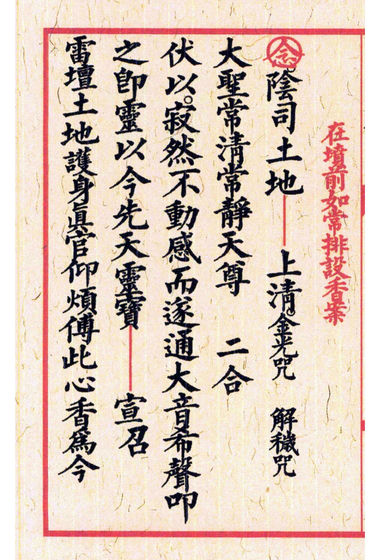 在墳前如常排設香案
念 陰司土地 上清金光咒 解穢咒
大聖常清常靜天尊 二合
伏以。寂然不動感而遂通大音希聲叩
之卽靈以今先天靈寶 宣召
雷壇土地護身眞官仰煩傳此心香爲今